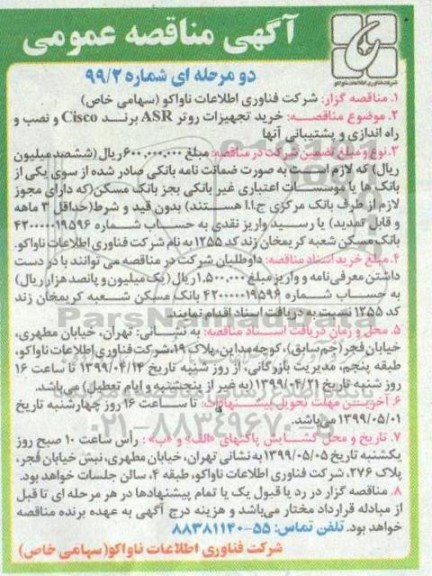 آگهی مناقصه عمومی
شرکت فناوری اطلاعات ناواکو
دو مرحله ای شماره ۹۹/۲
۱. مناقصه گزار: شرکت فناوری اطلاعات ناواکو (سهامی خاص)
۲. موضوع مناقصه: خرید تجهیزات روتر ASR برند Cisco و نصب و
راه اندازی و پشتیبانی آنها
۳. نوع و مبلغ تضمین شرکت در مناقصه: مبلغ ۶۰۰,۰۰۰,۰۰۰ ریال (ششصد میلیون
ریال) که لازم است به صورت ضمانت نامه بانکی صادر شده از سوی یکی از
بانک ها یا مؤسسات اعتباری غیر بانکی بجز بانک مسکن (که دارای مجوز
لازم از طرف بانک مرکزی ج.ا.ا هستند) بدون قید و شرط (حداقل ۳ ماهه
و قابل تمدید) یا رسید واریز نقدی به حساب شماره ۴۲۰۰۰۰۰۱۹۵۹۶
بانک مسکن شعبه کریمخان زند کد ۱۲۵۵ به نام شرکت فناوری اطلاعات ناواکو.
۴. مبلغ خرید اسناد مناقصه: داوطلبان شرکت در مناقصه می توانند با در دست
داشتن معرفی نامه و واریز مبلغ ۱,۵۰۰,۰۰۰ ریال (یک میلیون و پانصد هزار ریال)
به حساب شماره ۴۲۰۰۰۰۰۱۹۵۹۶ بانک مسکن شعبه کریمخان زند
کد ۱۲۵۵ نسبت به دریافت اسناد اقدام نمایند.
۵. محل و زمان دریافت اسناد مناقصه: به نشانی: تهران، خیابان مطهری،
خیابان فجر (جم سابق)، کوچه مداین، پلاک ۱۹، شرکت فناوری اطلاعات ناواکو،
طبقه پنجم، مدیریت بازرگانی، از روز شنبه تاریخ ۱۳۹۹/۰۴/۱۴ تا ساعت ۱۶
روز شنبه تاریخ ۱۳۹۹/۰۴/۲۱ (به غیر از پنجشنبه و ایام تعطیل) می باشد.
۶. آخرین مهلت تحویل پیشنهادات: تا ساعت ۱۶ روز چهارشنبه تاریخ
۱۳۹۹/۰۵/۰۱ می باشد.
۷. تاریخ و محل گشایش پاکتهای «الف» و «ب»: راس ساعت ۱۰ صبح روز
یکشنبه تاریخ ۱۳۹۹/۰۵/۰۵ به نشانی تهران، خیابان مطهری، نبش خیابان فجر،
پلاک ۲۷۶، شرکت فناوری اطلاعات ناواکو، طبقه ۴، سالن جلسات خواهد بود.
۸. مناقصه گزار در رد یا قبول یک یا تمام پیشنهادها در هر مرحله ای تا قبل
از مبادله قرارداد مختار می باشد و هزینه درج آگهی به عهده برنده مناقصه
خواهد بود. تلفن تماس: ۵۵-۸۸۳۸۱۱۴۰
شرکت فناوری اطلاعات ناواکو (سهامی خاص)
۰۲۱-۸۸۳۴۹۶۷۰